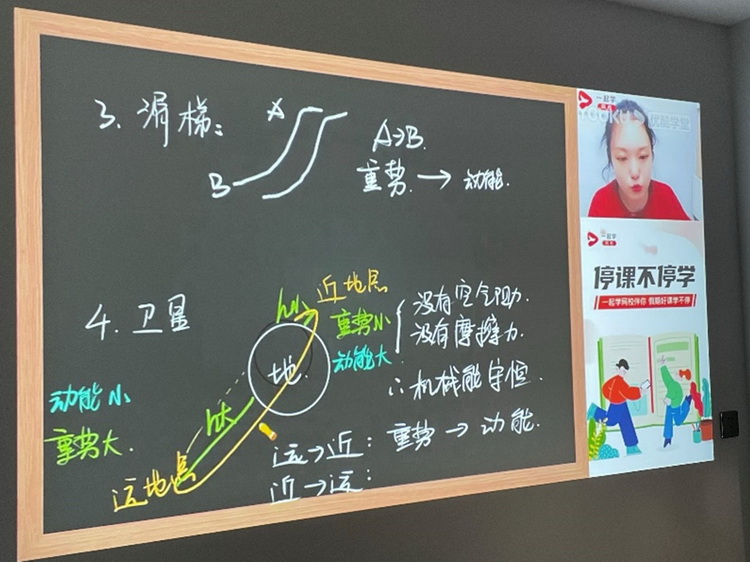 3. 滑梯:
A
B
A→B.
重势. → 动能.
4. 卫星
近地点
h小
重势小
动能大
地.
没有空气阻力.
没有摩擦力.
∴机械能守恒.
动能小
重势大.
h大
远地点
远→近: 重势→动能.
近→远:
一起学
网校
YOUKU 优酷学堂
一起学
网校
停课不停学
一起学网校伴你 假期好课学不停